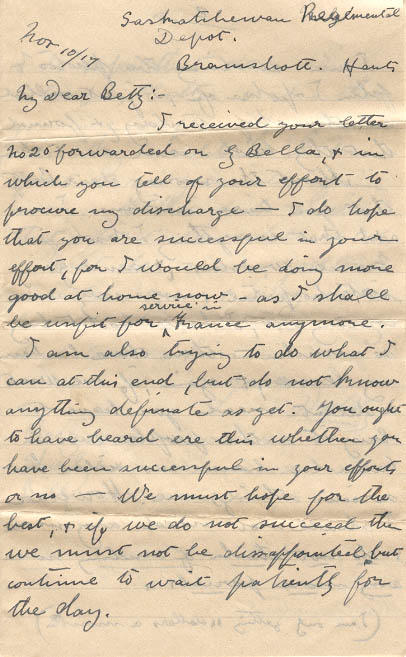 Saskatchewan Regimental
Depot.
Nov 10/17
Bramshott. Hants
My Dear Betty:-
I received your letter
No 20 forwarded on by Bella, & in
which you tell of your effort to
procure my discharge — I do hope
that you are successful in your
effort, for I would be doing more
good at home now - as I shall
be unfit for service in France anymore.
I am also trying to do what I
can at this end, but do not know
anything definate as yet. You ought
to have heard ere this whether you
have been successful in your efforts
or no — We must hope for the
best, & if we do not succeed then
we must not be dissappointed but
continue to wait patiently for
the day.